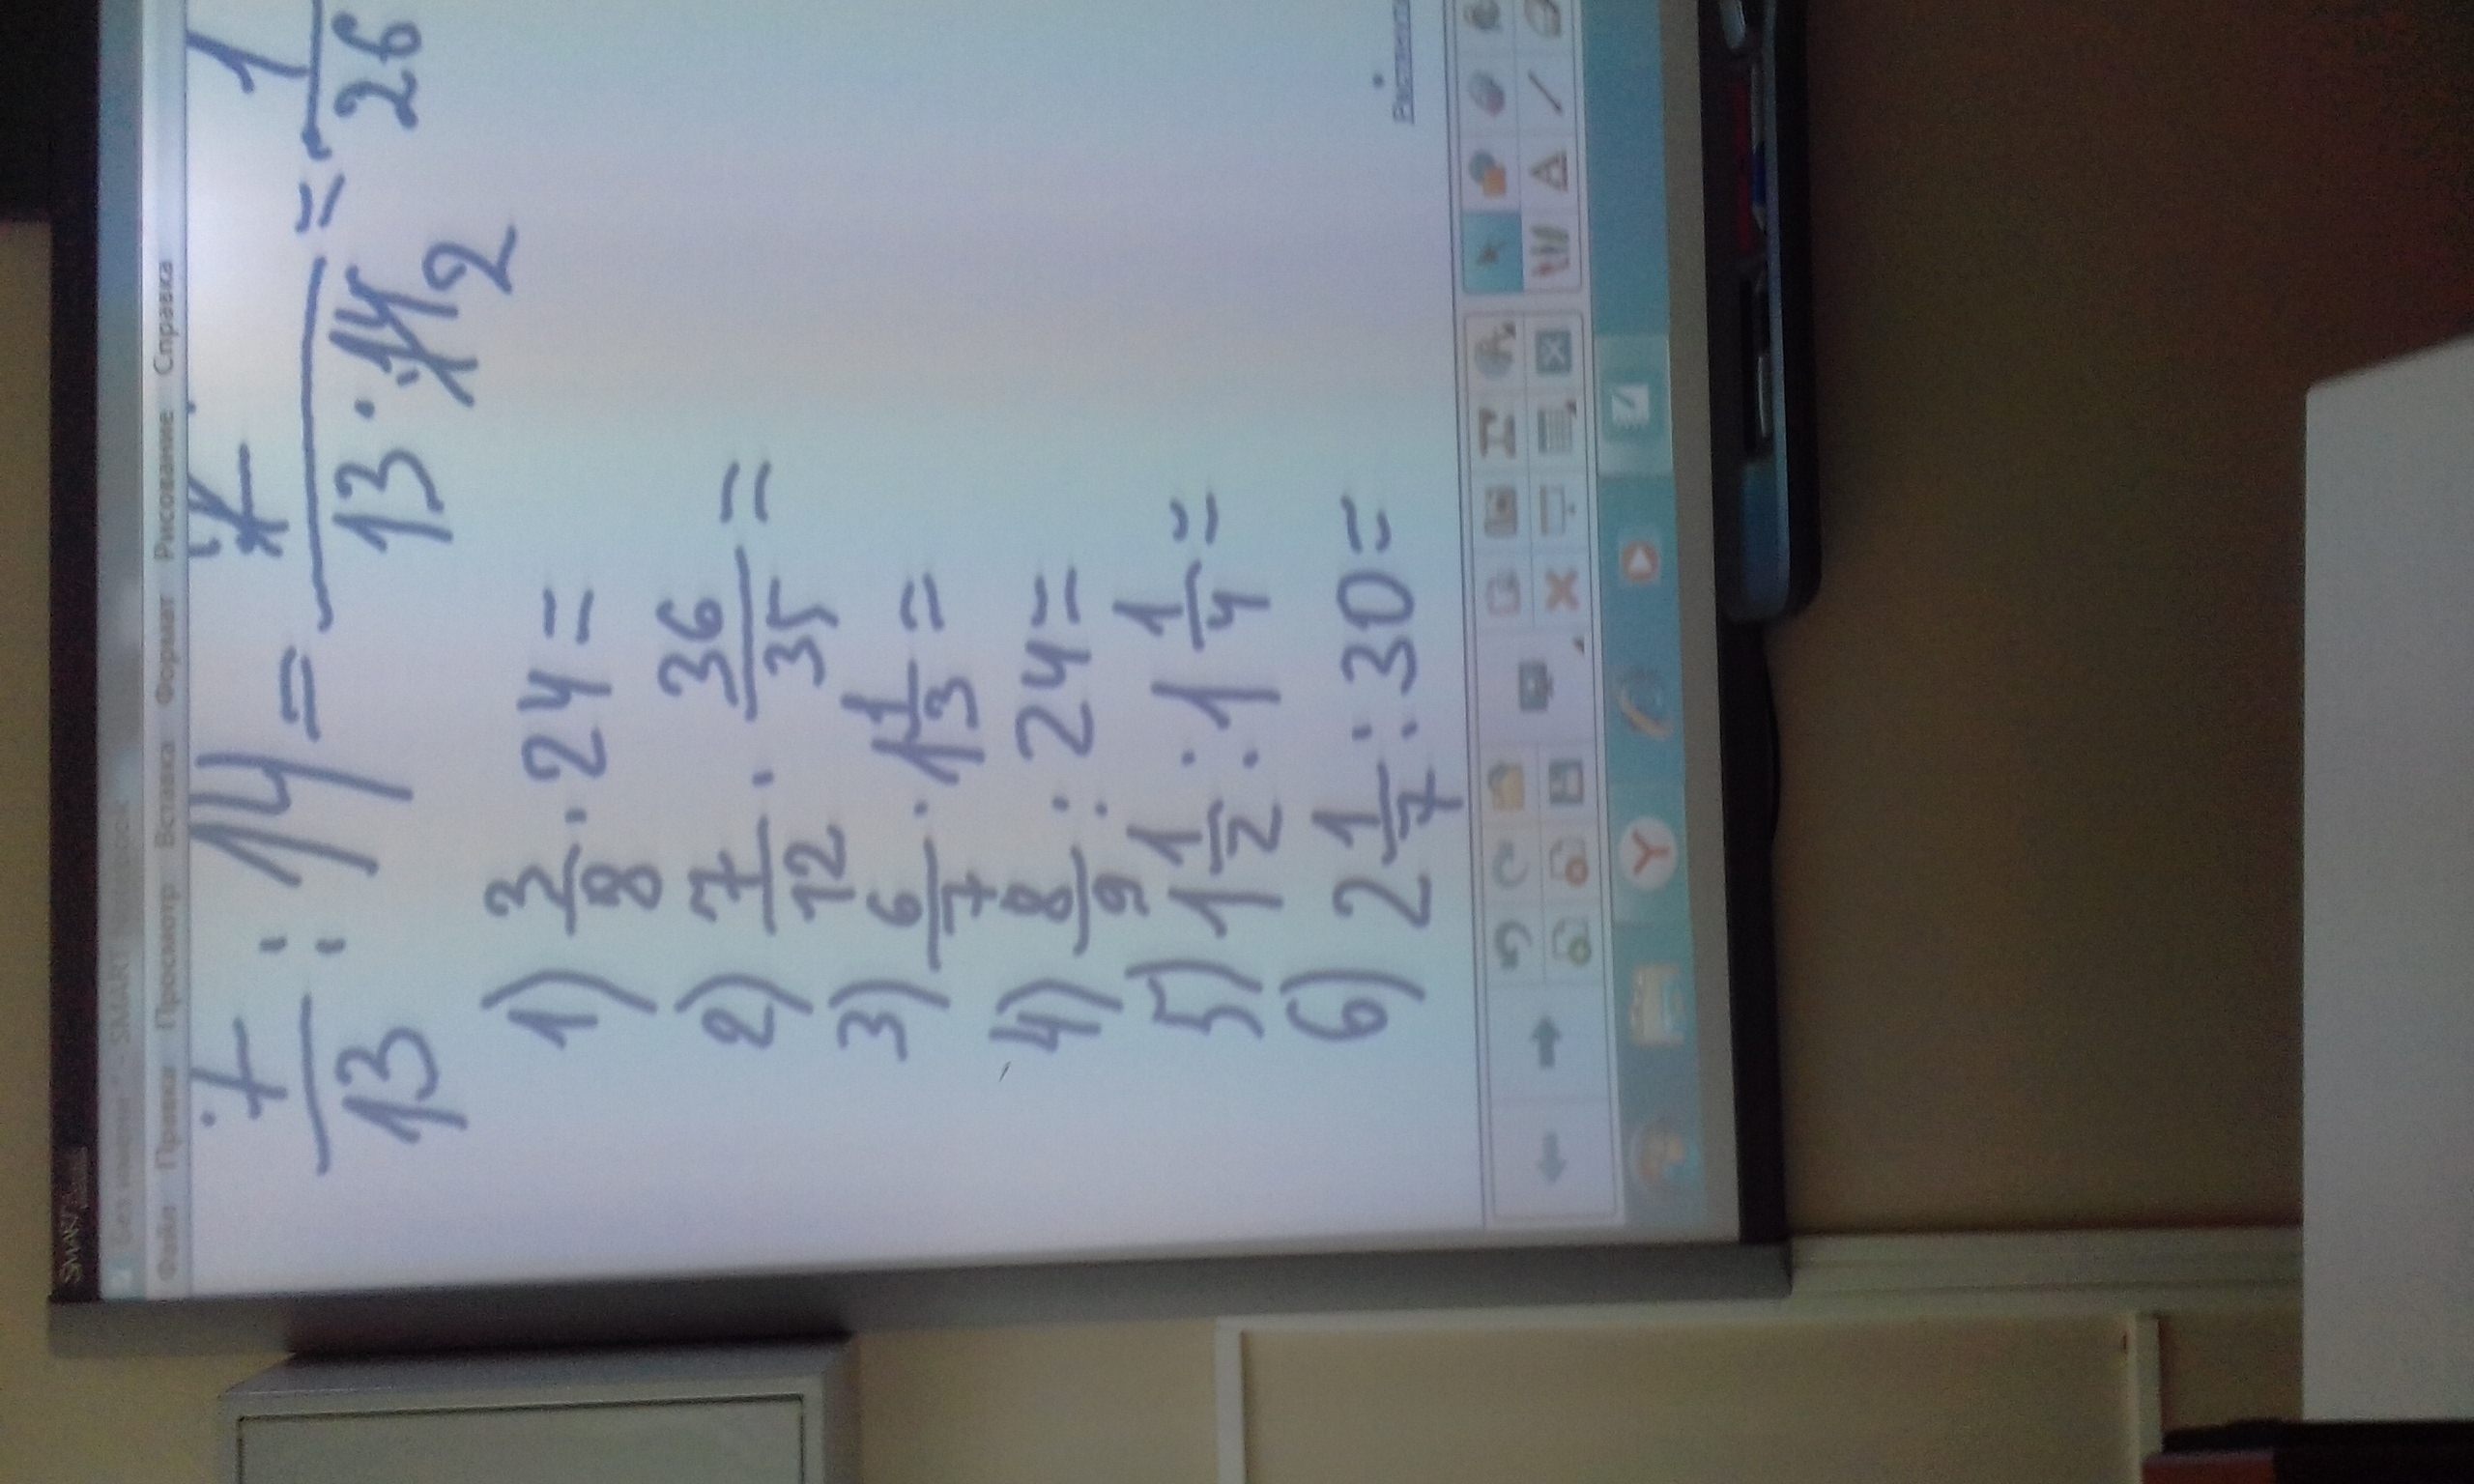 SMART
Без имени * - SMART Notebook
Файл Правка Просмотр Вставка Формат Рисование Справка
7/13 : 14 = 7/(13 · 14) = 1/26
1 2
1) 3/8 · 24 =
2) 7/12 · 36/35 =
3) 6/7 · 1 1/3 =
4) 8/9 : 24 =
5) 1 1/2 : 1 1/4 =
6) 2 1/7 : 30 =